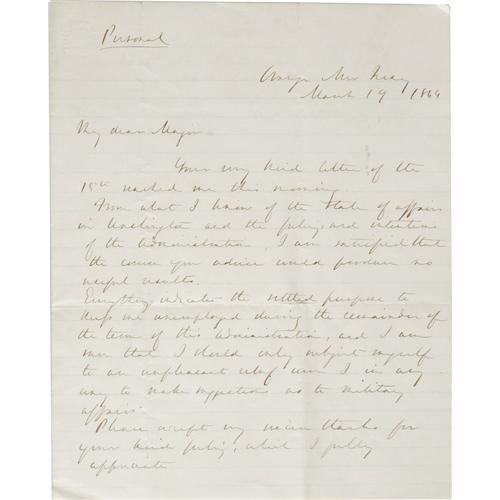 Personal
Orange New Jersey
March 19 1864
My dear Major
Your very kind letter of the
15th reached me this morning.
From what I know of the state of affairs
in Washington and the feelings and intentions
of the Administration, I am satisfied that
the course you advise would produce no
useful results.
Everything indicates the settled purpose to
keep me unemployed during the remainder of
the term of this Administration, and I am
sure that I should only subject myself
to an unpleasant rebuff were I in any
way to make suggestions as to military
affairs.
Please accept my sincere thanks for
your kind feeling, which I fully
appreciate